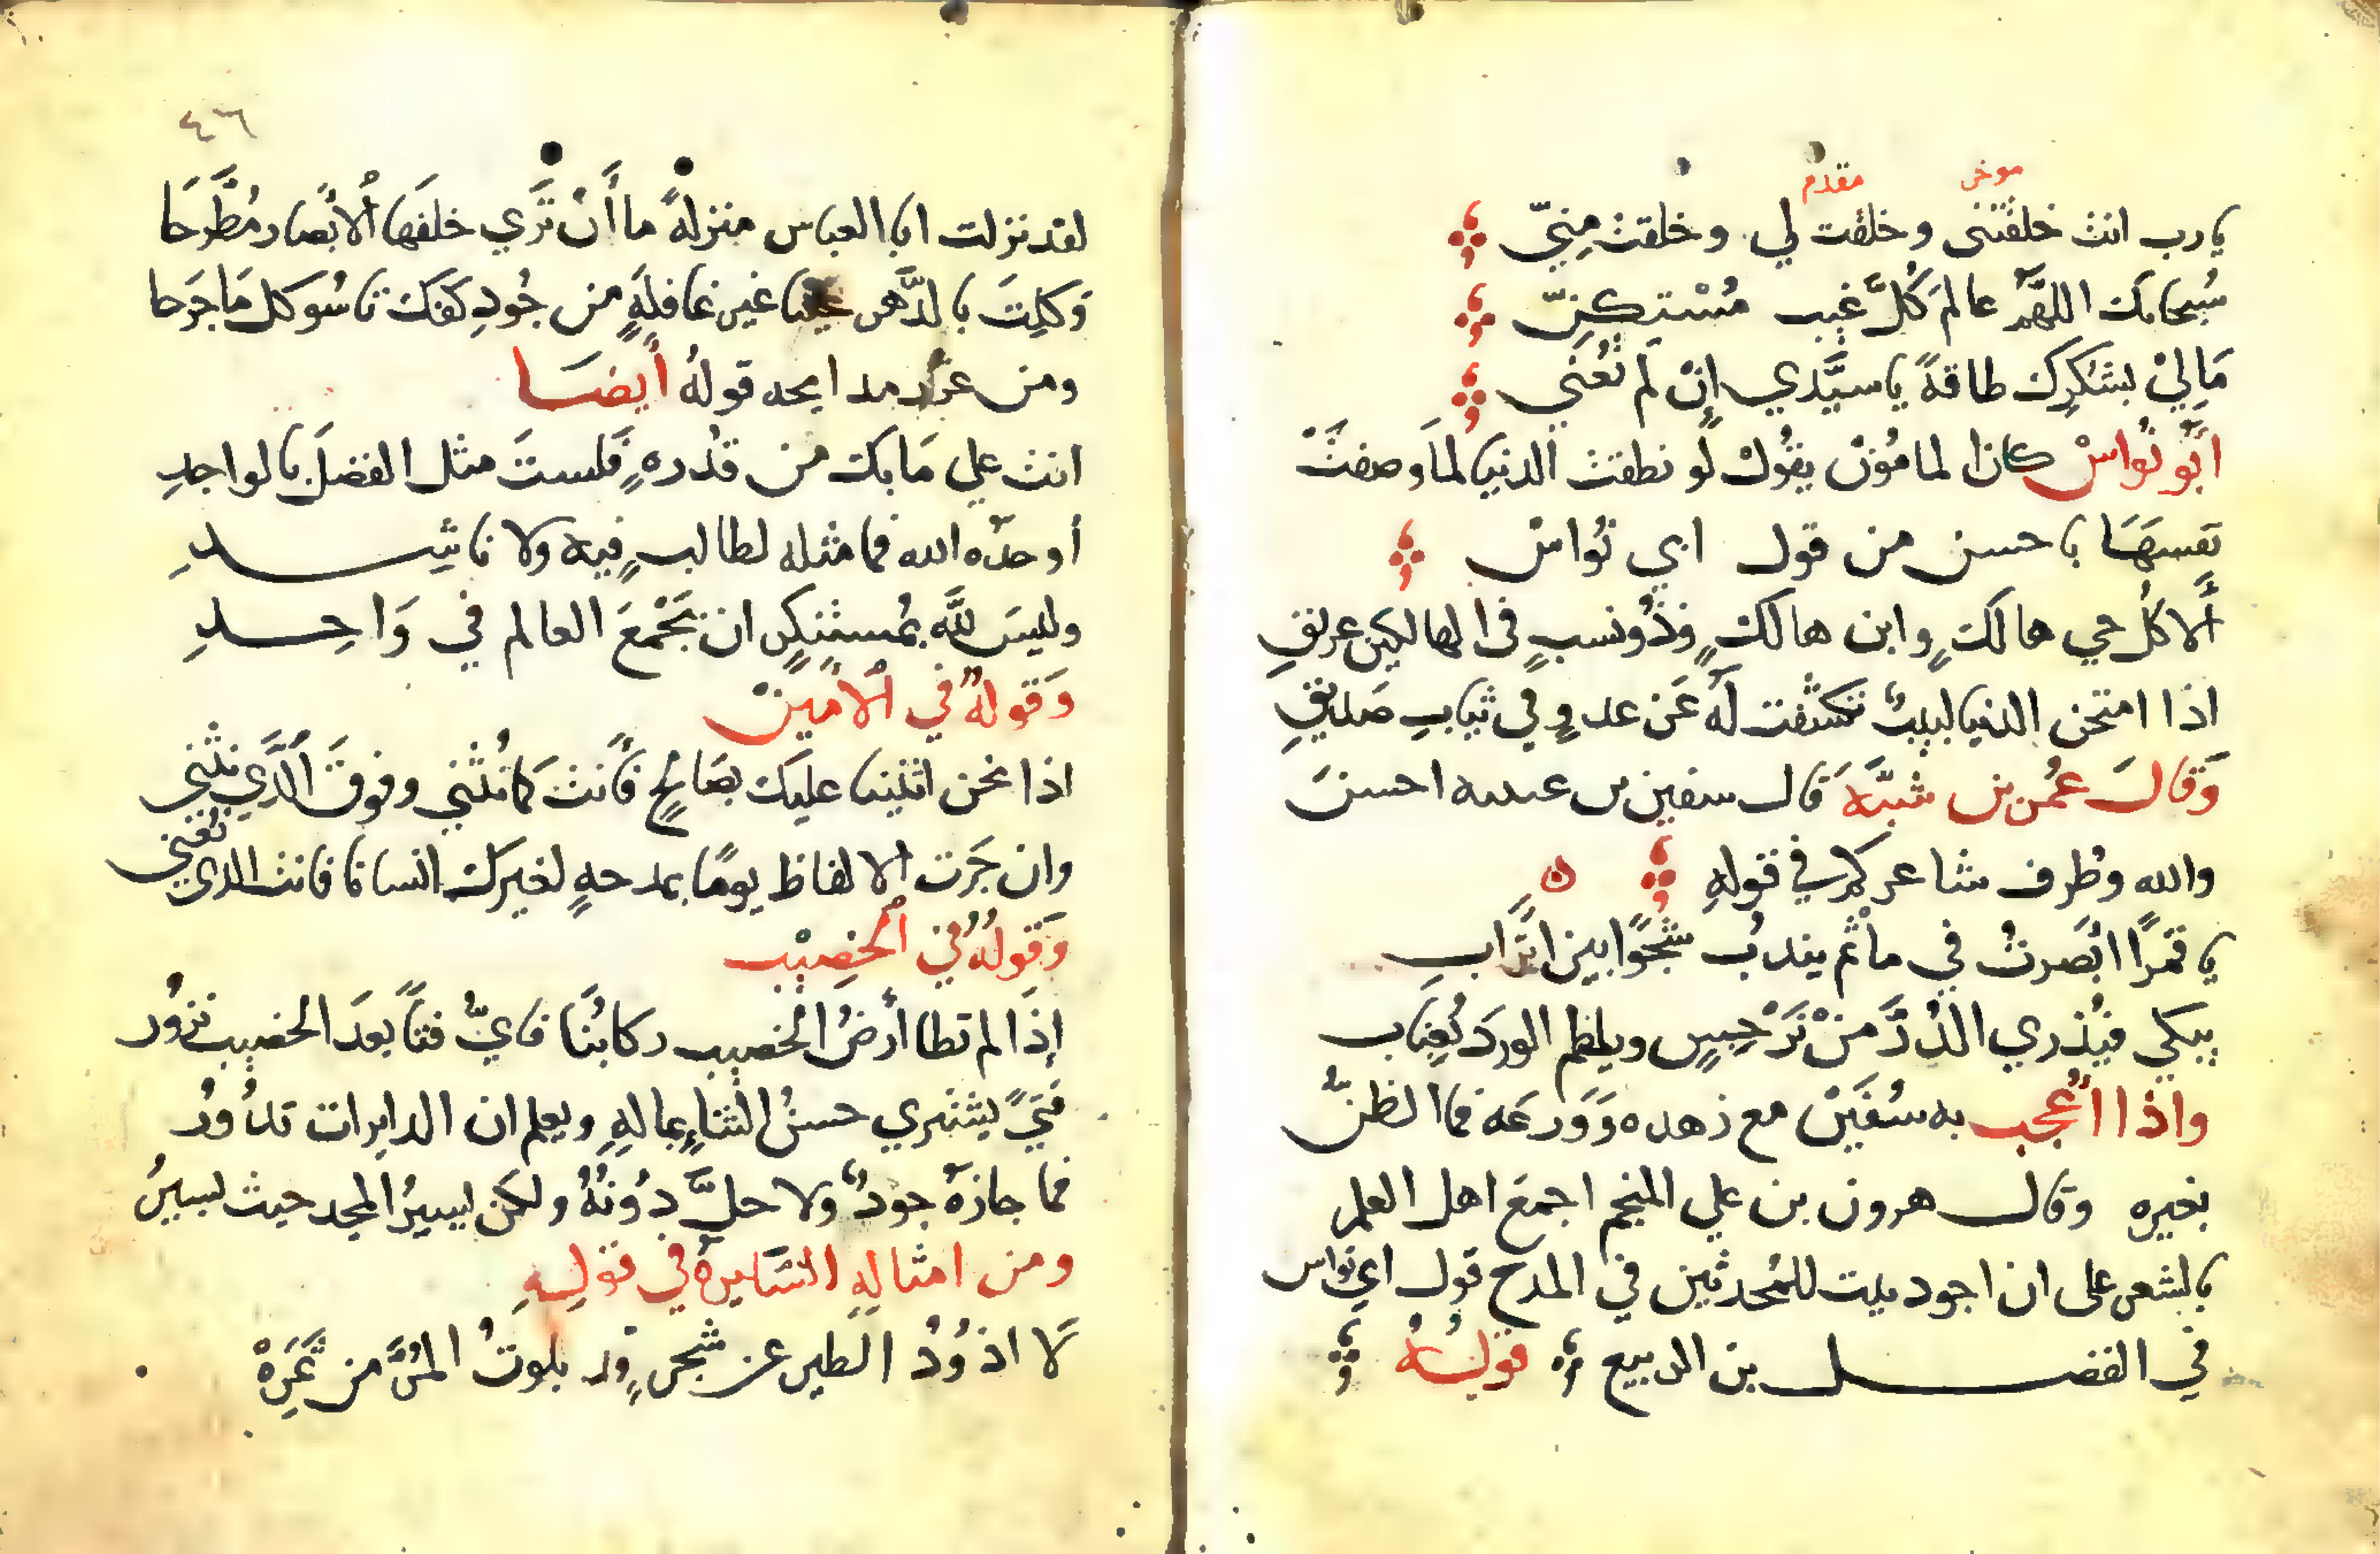 موخر مقدم
يا رب انت خلقتنى وخلقت لي وخلقت مِنيّ
سُبحانك اللهُمَّ عالمَ كُلَّ غيب مُسْتكِنِّ
مَالِيْ بشكرِك طاقةً يا سيَّدي إنْ لم تُعنِي
ابُو نُواسْ كان المامُوْن يقُوْل لو نطقت الدنيا لما وصفتْ
نفسَهَا باحسن من قول ابي نُواسْ
ألا كلُ حي هالكٍ وابن هالكٍ وذُو نسبٍ فى الهالكين عريقِ
اذا امتحن الدنيا لبيبٌ تكشفت له عَن عدوٍ في ثيابِ صَديقِ
وَقَالَ عُمر بن شبَّهَ قال سفين بن عيينه احسنَ
والله وظُرف شاعركم في قولهِ
يا قمرًا ابْصرتُ في ماْتم يندبُ شجْوًا بين اتْرابِ
يبكي فيُذري الدُرَّ منْ نَرْجِسٍ ويلطم الوردَ بعناب
واذا اُعْجب به سُفيَنْ مع زهده وَوَرعَه فما الظنُّ
بغيره وقال هرون بن علي المنجم اجمعَ اهل العلم
بالشعر على ان اجود بيت للمُحدثين في المدح قول ابي نواس
في الفضل بن الربيع قولُهُ
٤٦
لقد نزلت ابا العباس منزلةً ما أَنْ تَرَي خلفَها اُلابْصار مُطَّرحَا
وَكلتَ بالدَّهر عينا غير غافلةٍ من جُودِ كفك تاسُو كل مَا جَرَحا
ومن غرر مدايحه قولهُ أيضَا
انت علي مَا بك من قدْرهٍ فَلستَ مثل الفضل بالواجدِ
أوحدَه الله فما مثله لطالبٍ فيه ولا ناشِدِ
وليسَ للهِ بمُستنكرٍ ان يَجْمعَ العالم في وَاحِدِ
وَقولهُ في اْلامِينْ
اذا نحن اثنينا عليك بصَالحٍ فأنت كما نُثني وفوقَ الَّذي نثني
وان جَرَت الالفاظ يومًا بمدحهٍ لغيرك انسانا فانت الذي نُعني
وَقولُهُ في اْلخصِيْب
إذَا لم تطا أرضُ الخصيب ركابُنَا فايُّ فتاً بعدَ الخصيب نزوُر
فتيً يشتري حسنُ الثناءِ بمالهِ ويعلم ان الدايرات تدوُرُ
فما جازهُ جودٌ ولا حلَّ دوُنهُ ولكن يسيرُ المجد حيث يسيرُ
ومن امثالهِ السَّايرة في قولِهِ
لَا اذوُدُ الطير عن شجرٍ قد بلوتُ المُرَّ من ثمَرِهْ